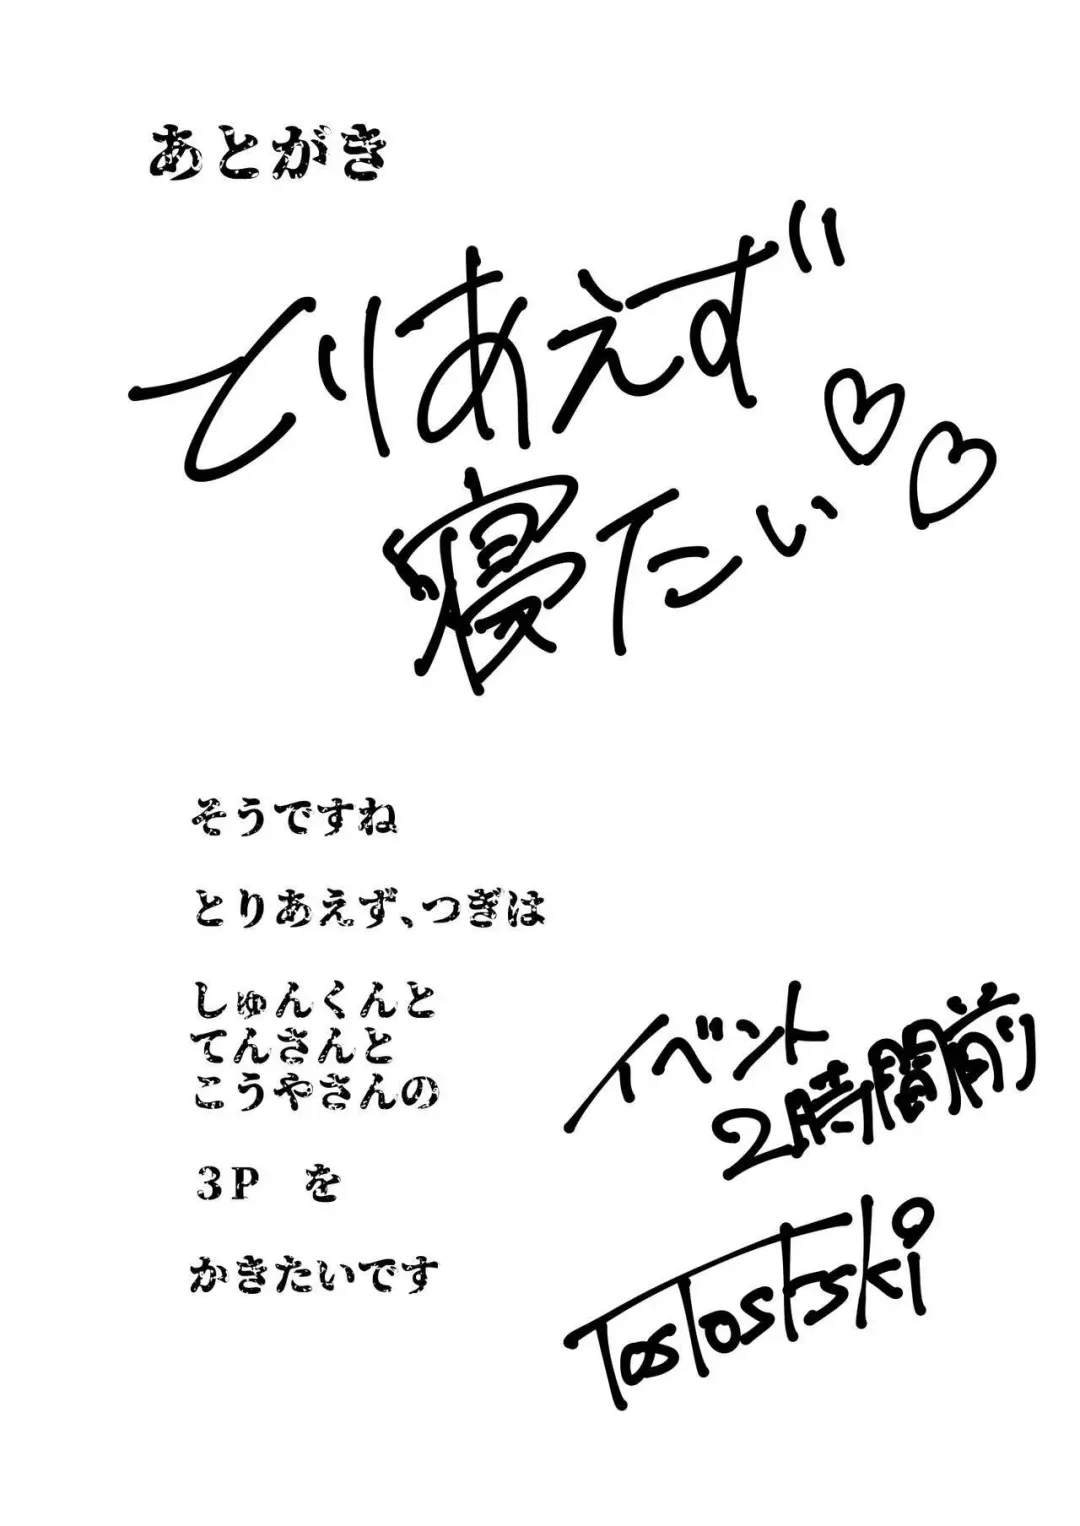 あとがき
とりあえず
寝たい♡♡
そうですね
とりあえず、つぎは
しゅんくんと
てんさんと
こうやさんの
3P を
かきたいです
イベント
2時間前
TosTostski